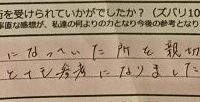 術を受けられていかがでしたか？（ズバリ10
率直な感想が、私達の何よりの力となり今後の参考となり
になっていた所を親切
とても参考になりました